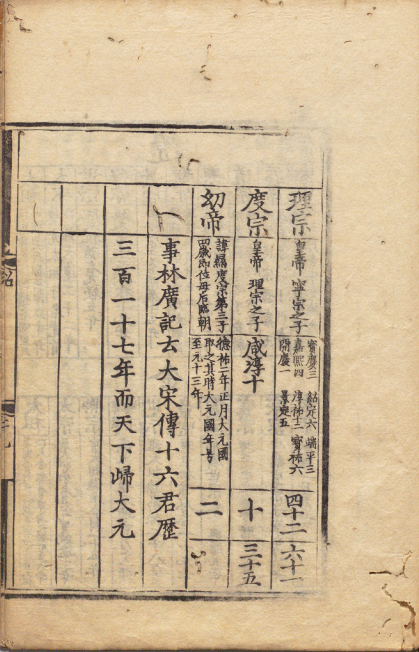 理宗 皇帝 寧宗之子
寶慶三 紹定六 端平三
嘉熙四 淳祐十二 寶祐六
開慶一 景定五
四十二 六十一
度宗 皇帝 理宗之子 咸淳十 十 三十五
幼帝
諱㬎度宗第三子
四歲即位母后臨朝
德祐二年正月大元國
取之其時大元國年号
至元十三年
二
事林廣記云大宋傳十六君歴
三百一十七年而天下歸大元